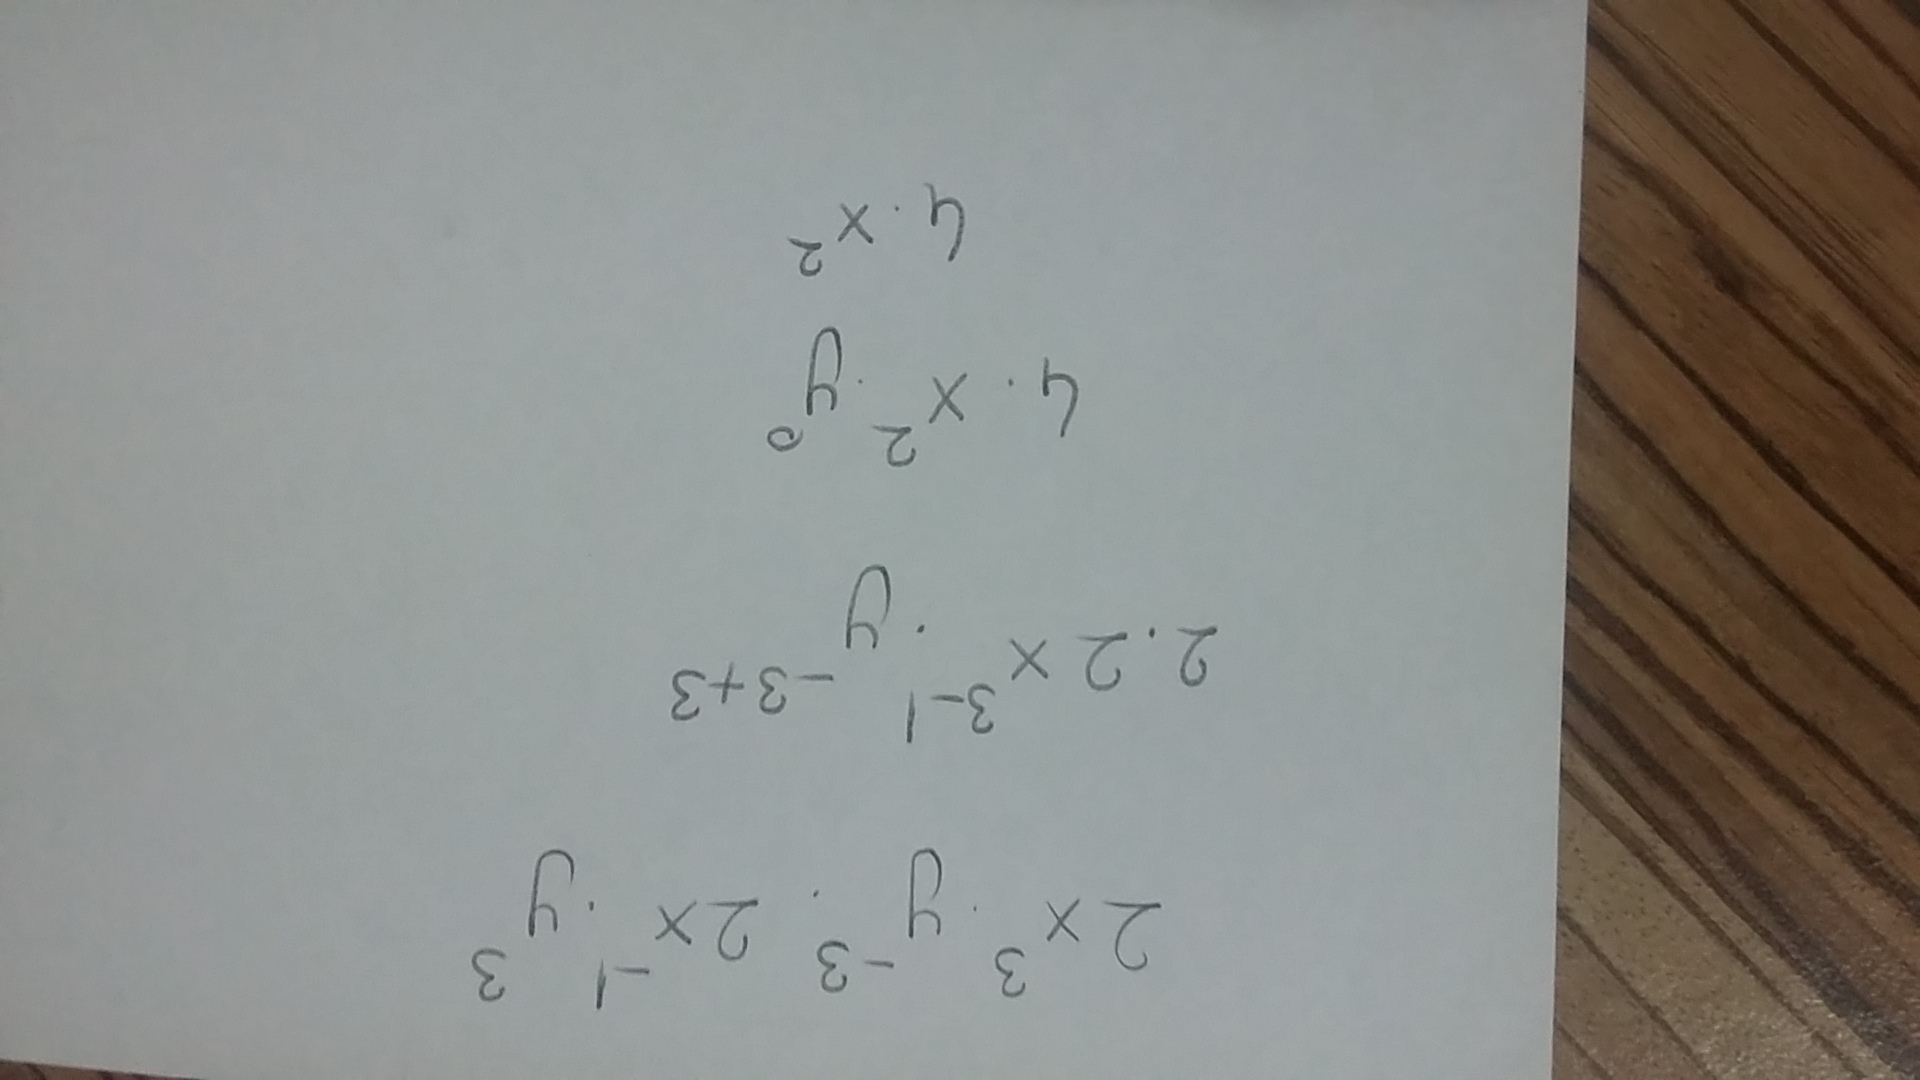 2x³ · y⁻³ · 2x⁻¹ · y³
2 · 2x³⁻¹ · y⁻³⁺³
4 · x² · y⁰
4 · x²